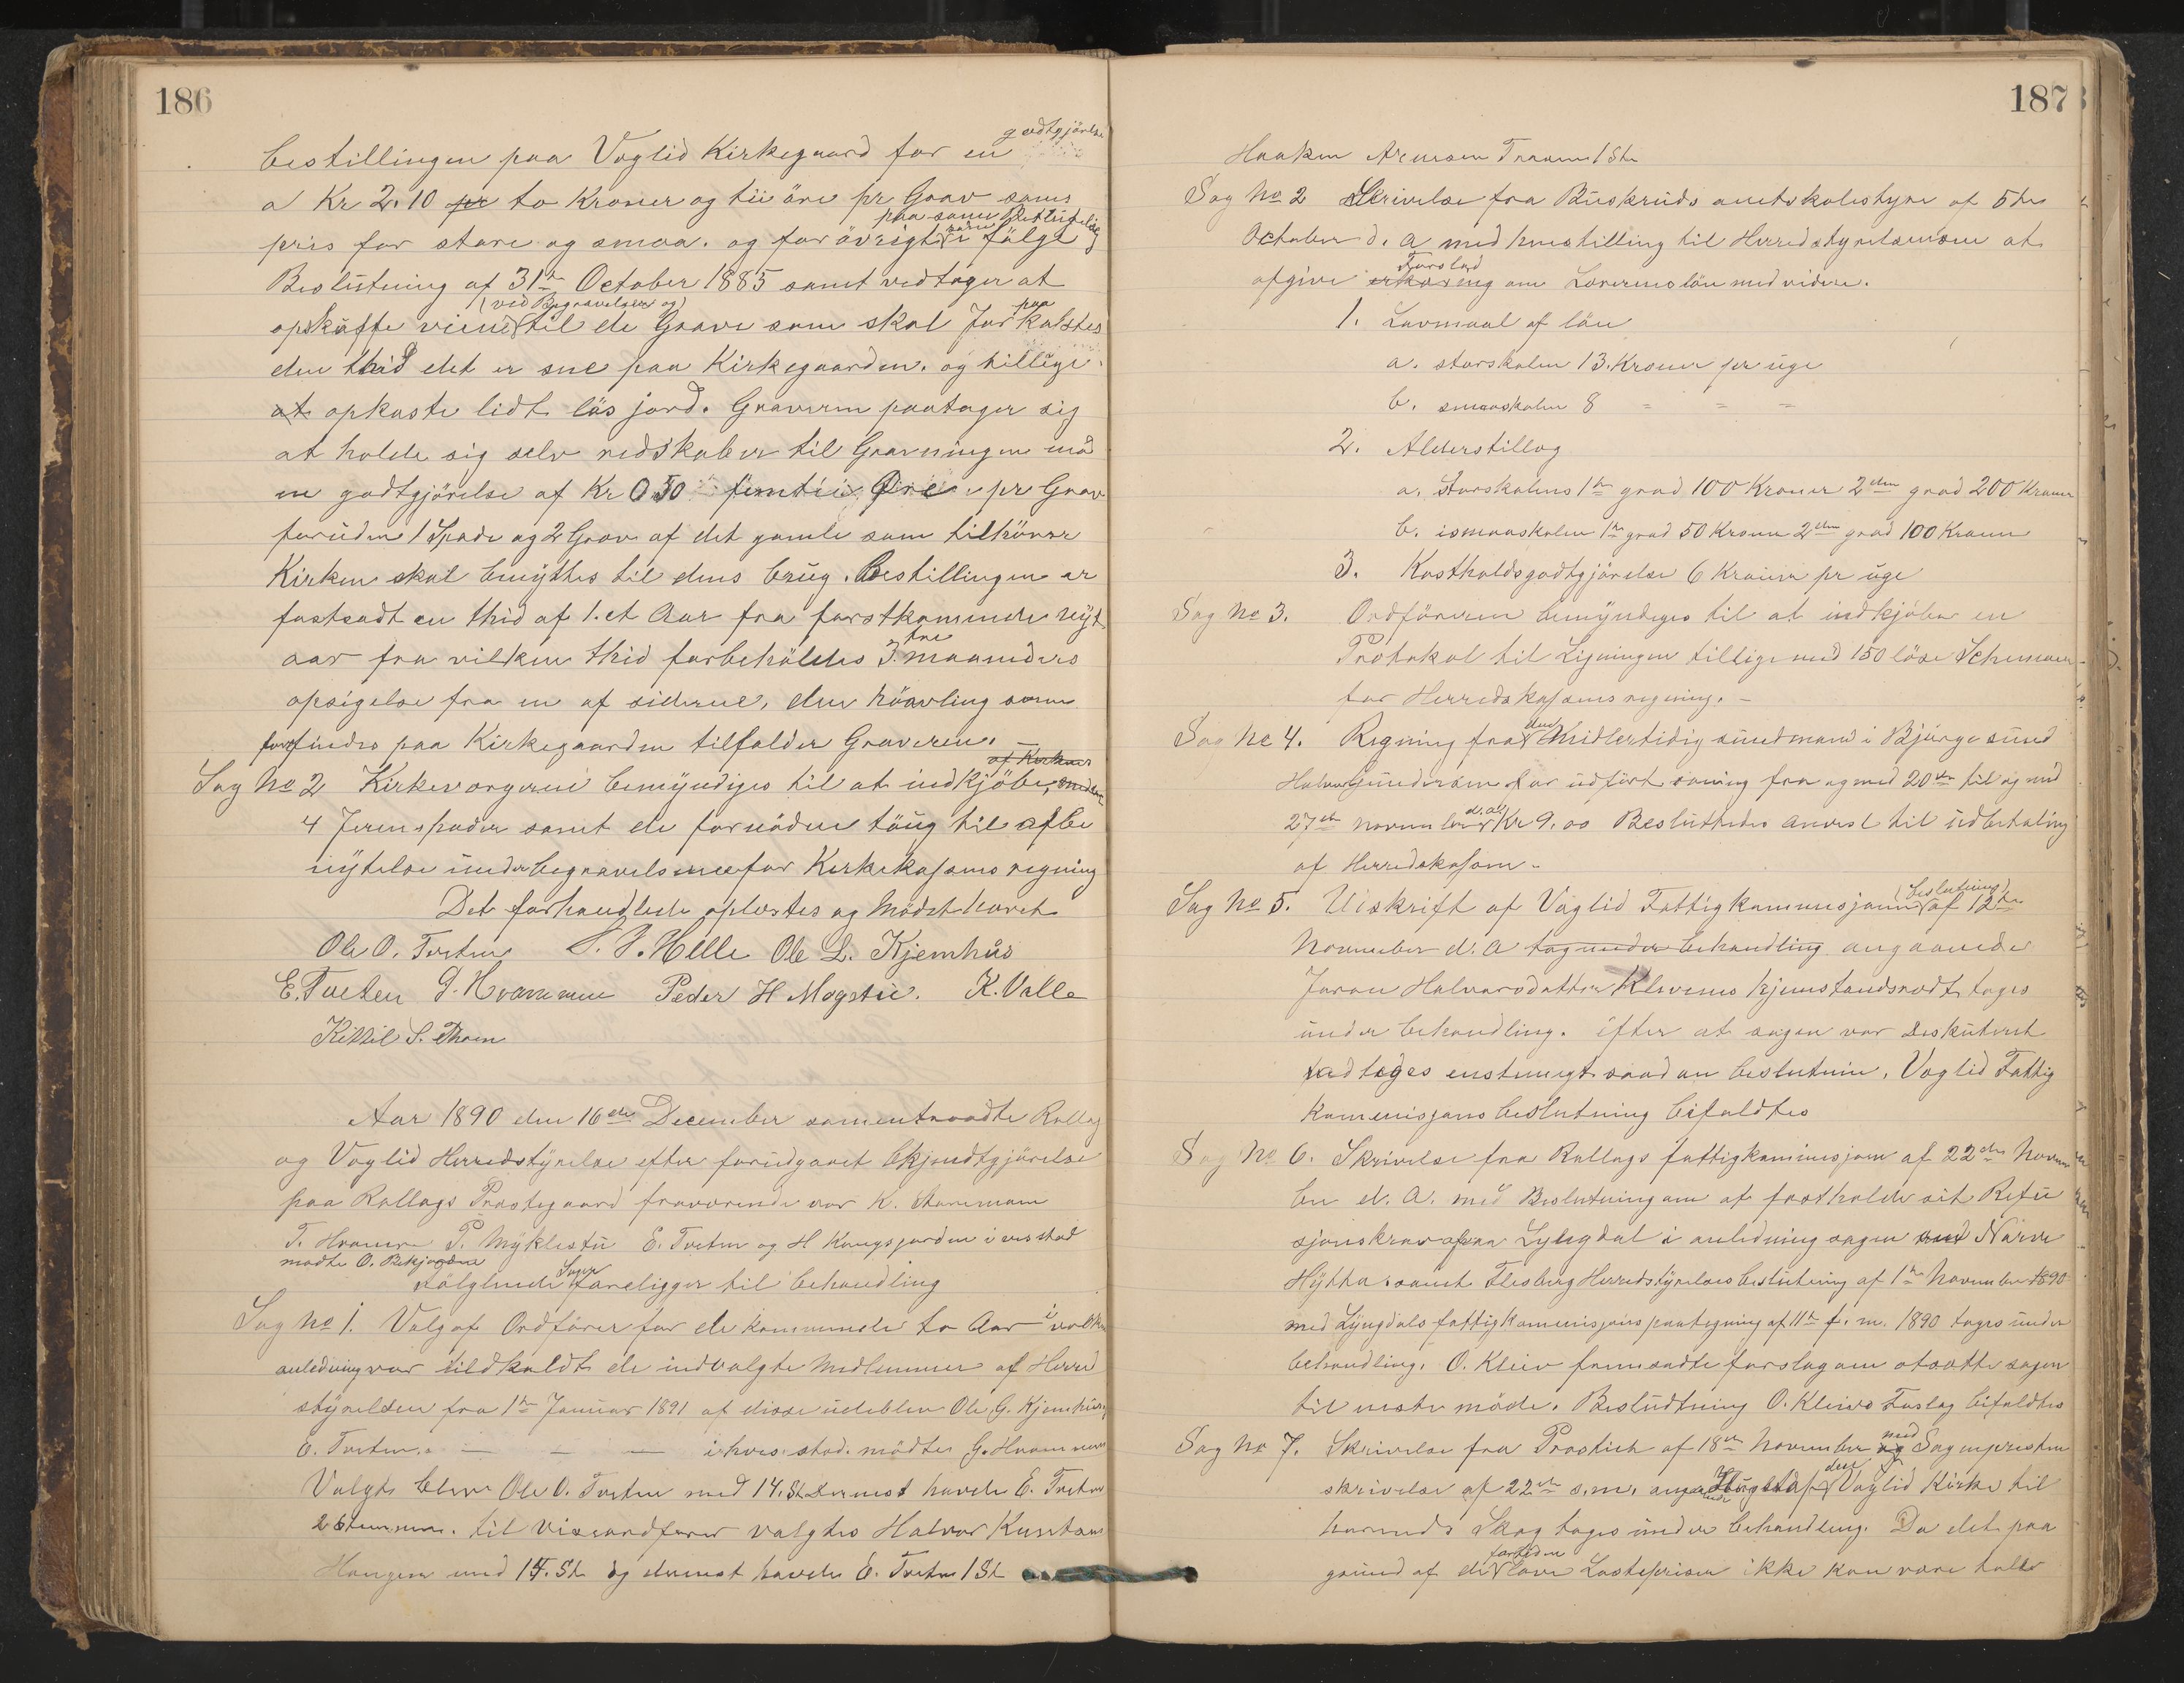 186
godtgjörelse
bestillingen paa Veglid Kirkegaard for en
a Kr 2.10 pr to Kroner og tii öre pr Grav sams
paa same Betidelig
pris for store og smaa. og forövrigt i fölge
Beslutning af 31te October 1885 samt vedtager at
(ved Begravelsen og) paa
opskuffe veiene til de Grave som skal Jordkastes
den thid det er sne paa Kirkegaarden. og tillige
at opkaste lidt lös jord. Graveren paatager sig
at holde sig selv redskaber til Gravningen mod
en godtgjörelse af Kr 0.50 femtii Öre pr Grav
foruden 1 Spade og 2 Grev af det gamle som tilhörer
Kirken skal benyttes til dens brug. Bestillingen er
fastsadt en thid af 1. et Aar fra förstkomende nyt
tre
aar fra vilken thid forbeholdes 3. maaneders
opsigelse fra en af siderne, den höavling som
forefindes paa Kirkegaarden tilfalder Graveren.
af Kirkens
Sag No 2 Kirkevergerne bemyndiges til at indkjöbe,
4 Jernspader samt de fornödne töug til afbe
nytelse under begravelserne for Kirkekassens regning
Det forhandlede oplæstes og Mödet hævet
Ole O. Tveten S. P. Helle Ole L. Kjemhus
E. Tveten G. Hvammen Peder H Mogstue. K. Valle
Kittil S. Thoen
Aar 1890 den 16de December sammentraadte Rollag
og Veglid Herredstyrelse efter forudgaaet bekjendtgjörelse
paa Rollags Præstegaard fraværende var K.
T. Hvamen P. Myklestu E. Tveten og H Kongsjorden i vis stad
mødte O. Bekjorden
Sager
fölgende foreligger til behandling
i
Sag No 1. Valg af Ordförer for de kommende to Aar vilken
anledning var tildkaldt de indvalgte Medlemmer af Herred
styrelsen fra 1te Januar 1891 af disse udeblev Ole G. Kjemhus,
E. Tveten. — — — i hves stad mödtes G. Hvammen
Valgt blev Ole O. Tveten med 14. St Dernest havde E. Tveten
2 Stemmer. til Viseordförer valgtes Halvor Knutsen
Haugen med 14. St og dernest havde E. Tveten 1 St
187
Haaken Arneson Traaen 1 St
Sag No 2 Skrivelse fra Buskruds amtskolestyre af 5te
October d. A med henstilling til Herredstyrelserne at
Forslag
afgive erklæreng om Lærernes lön med videre.
1. Lavmaal af lön
a. storskolen 13. Kroner pr uge
b. smaaskolen 8 = = =
2. Alderstillæg
a. Storskolens 1te grad 100 Kroner 2den grad 200 Kroner
b. ismaaskolen 1te grad 50 Kroner 2den grad 100 Kroner
3. Kostholdsgodtgjörelse 6 Kroner pr uge
Sag No 3. Ordföreren bemyndiges til at indkjöber en
Protokol til Ligningen tillige med 150 löse Schemaer
for Herredskassens regning.
den
Sag No 4. Regning fra Midlertidig sundmand i Bjürge sund
Halvor Gundersen for udfört soning fra og med 20de til og med
d. A
27de November Kr 9.00 Besluttedes Anvist til udbetaling
af Herredskassen.
(beslutning)
Sag No 5. Udskrift af Veglid Fattigkommisjonen af 12te
November d. A tog under behandling angaaende
Joran Halvorsdatter Klevens hjemstandsrædt tages
under behandling. efter at sagen var Deskuteret
vedtoges enstemigt saadan beslutnin. Veglid Fattig
Kommisjons beslutning bifaldtes
Sag No 6. Skrivelse fra Rollags fattigkommisjon af 22de Novem
ber d. A. med Beslutning om at fastholde sit Refu
sjonskrav ofver Lyngdal i anledning sagen med Narve
Hytta samt Flesberg Herredstyrelses beslutning af 1te November 1890
med Lyngdals fattigkommisjons paategning af 11te f. m. 1890 tages under
behandling. O. Kleiv fremsadte forslag om at satte sagen
til neste möde. Besludtning O. Kleivs Foslag bifaldtes
med
Sag No 7. Skrivelse fra Prostiet af 18de November og Sogneprestens
den
skrivelse af 22de s.m. Veglid Kirke til
hørende Skog tages under behandling. Da det paa
fortiden
grund af de lave Lasteprisen ikke kan være holde